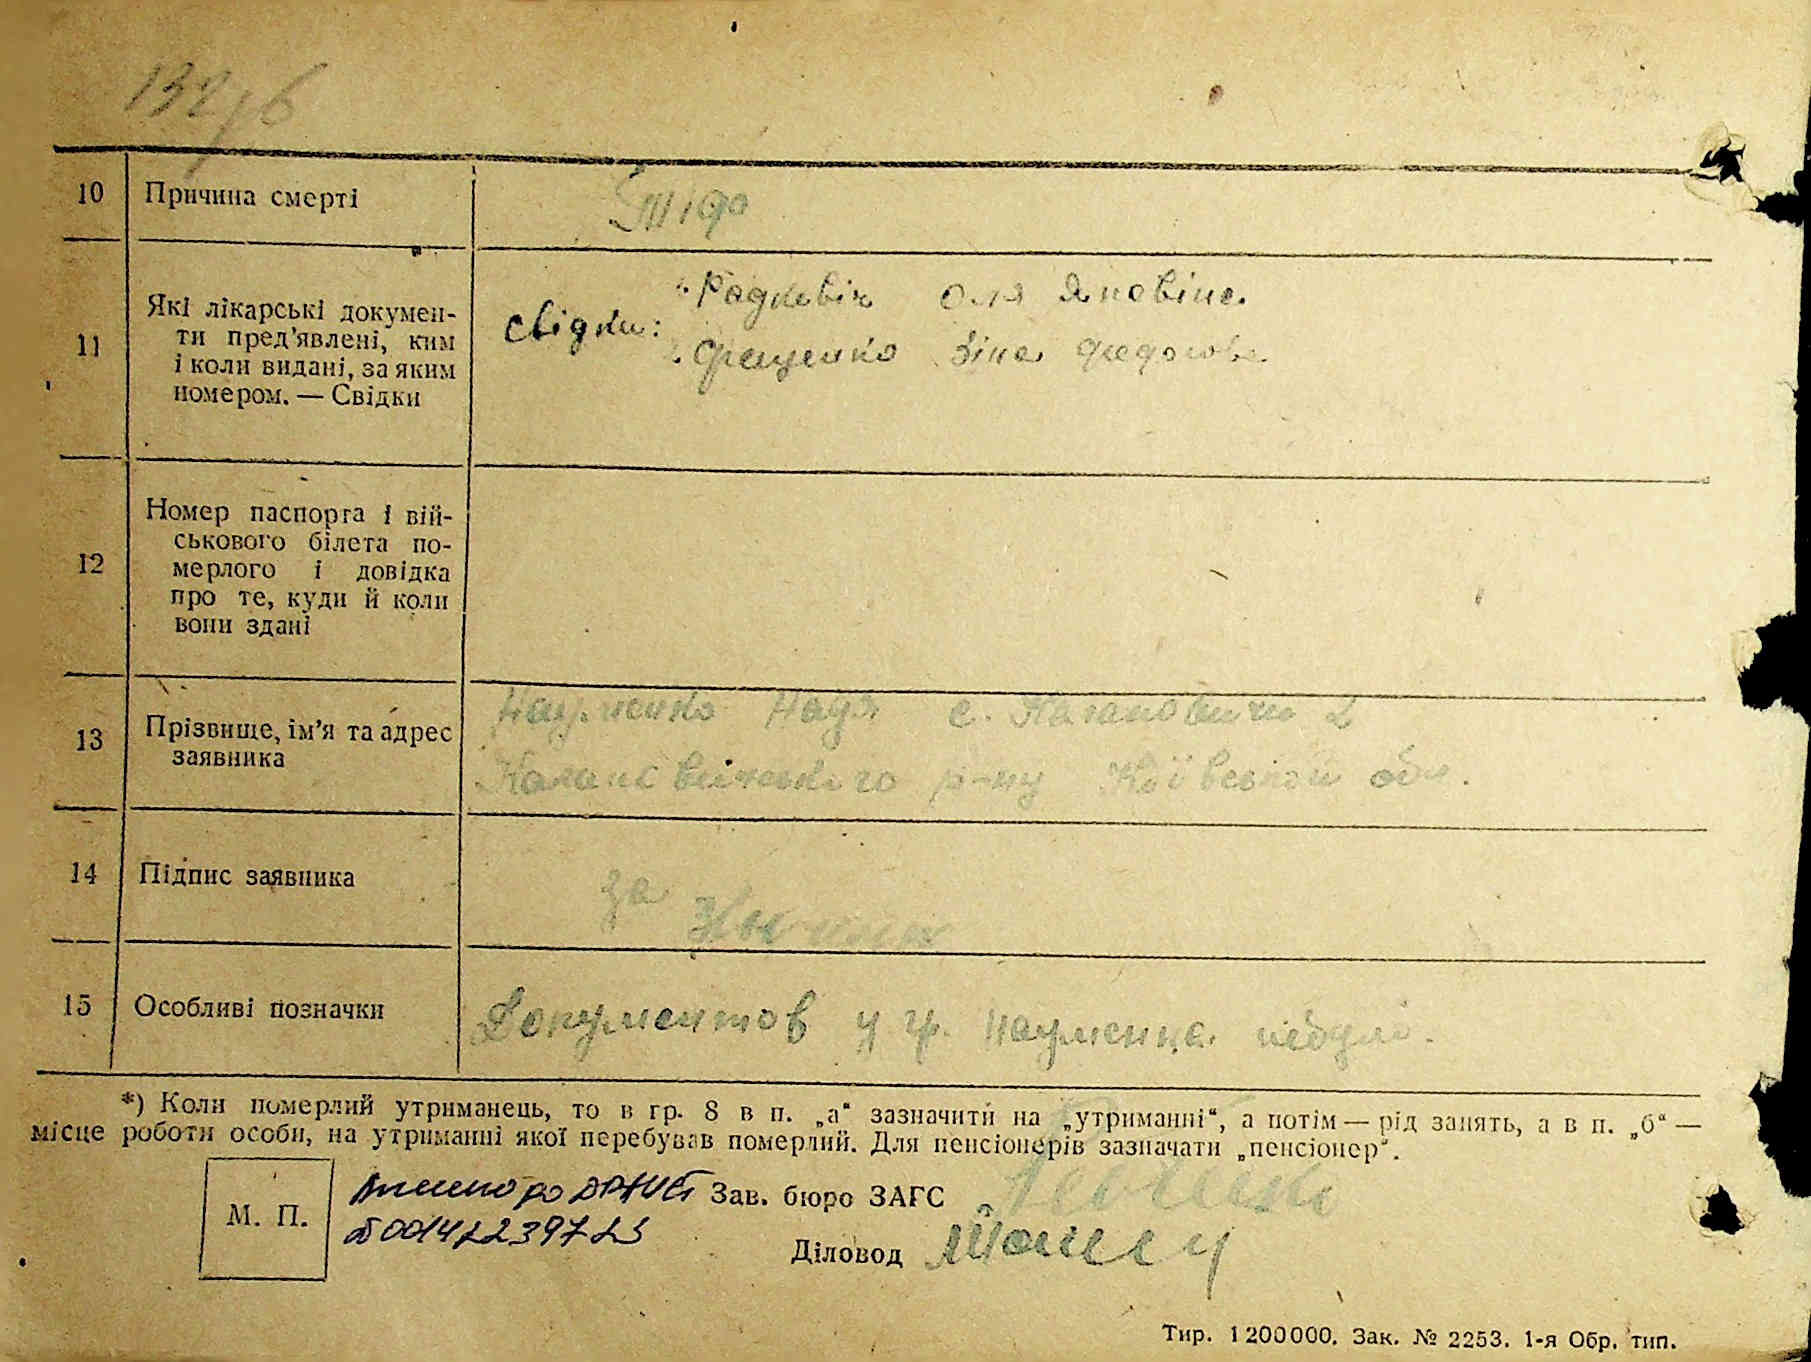 10 Причина смерті
11 Які лікарські докумен-
ти пред'явлені, ким
і коли видані, за яким
номером. — Свідки
Свідки: 1. Радкевіч Оля
2. Фещенко Зіна Федорова
12 Номер паспорта і вій-
ськового білета по-
мерлого і довідка
про те, куди й коли
вони здані
13 Прізвище, ім'я та адрес
заявника
Науменко Надя с. Кагановичи 2
р-ну обл.
14 Підпис заявника
за
15 Особливі позначки
Документов у гр. Науменка небуло.
*) Коли померлий утриманець, то в гр. 8 в п. „а“ зазначити на „утриманні“, а потім — рід занять, а в п. „б“ —
місце роботи особи, на утриманні якої перебував померлий. Для пенсіонерів зазначати „пенсіонер“.
М. П.
Внесено до ДРАЦС
Зав. бюро ЗАГС
Діловод
Тир. 1200000. Зак. № 2253. 1-я Обр. тип.